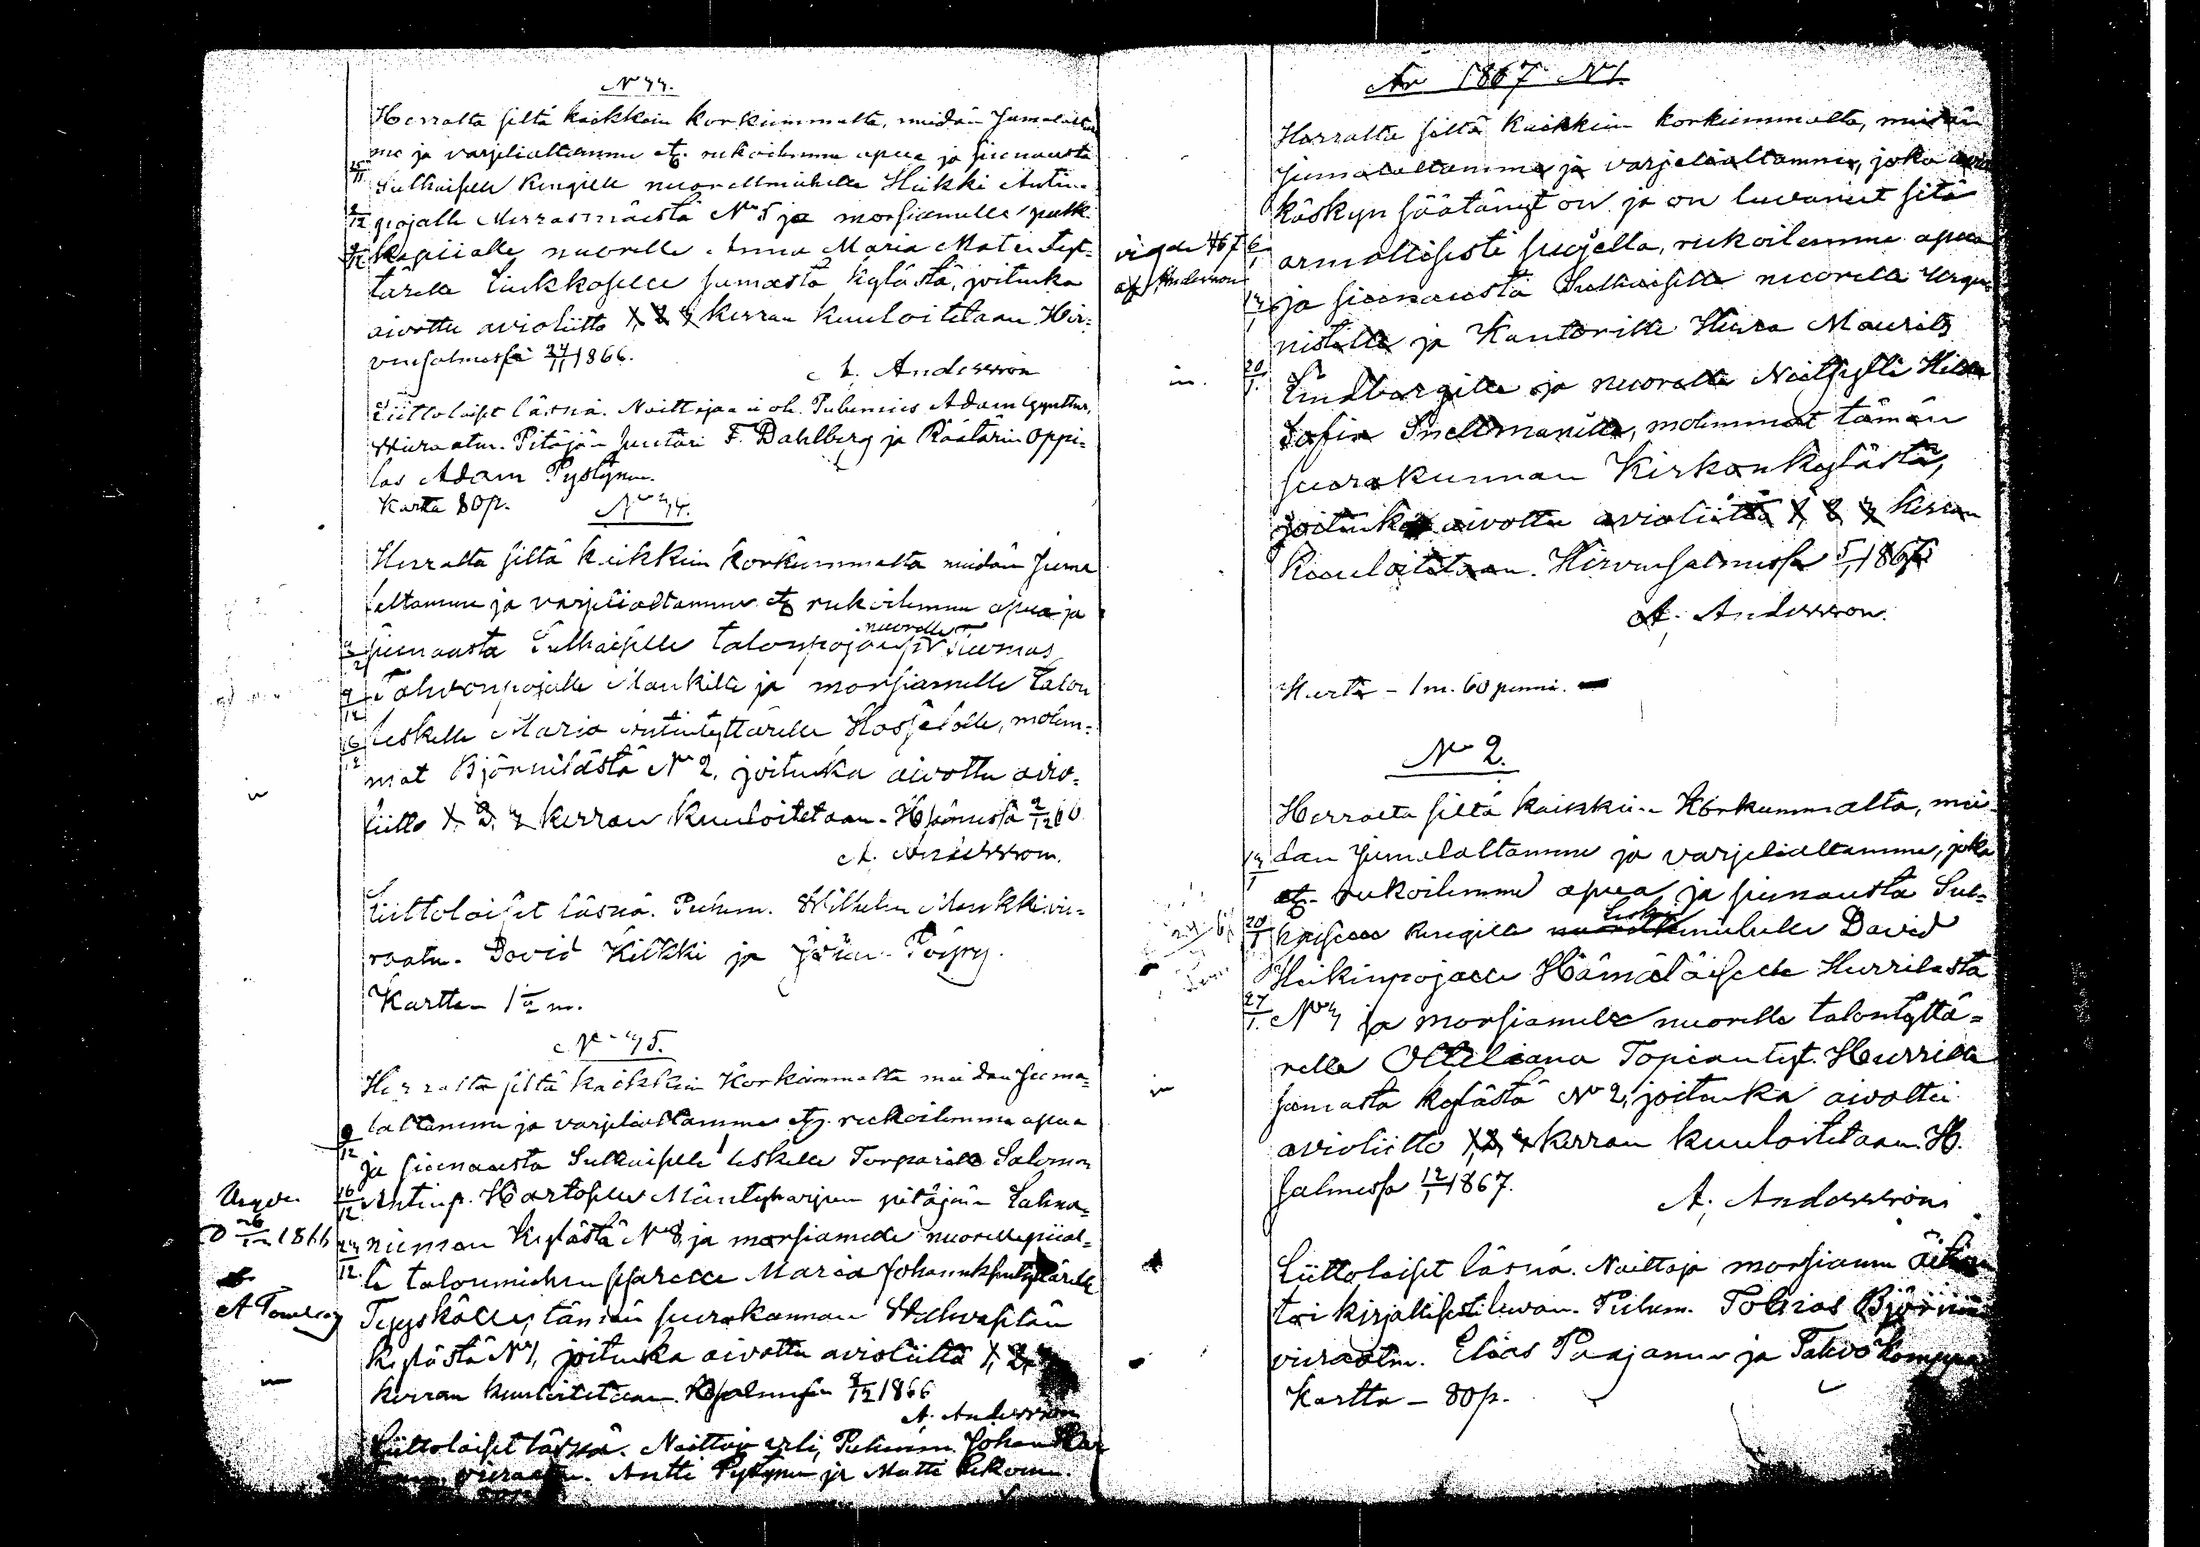 N 33.
Herralta siltä kaikkein korkeimmalta, meidän Jumalalta
me ja varjelialtamme etc. rukoilemme apua ja siunausta
25/11 Sulhaiselle Rengille nuorellmiehelle Heikki Antin
2/12 pojalle Merrasmäestä No 5 ja morsiamelle palk
9/12 kapiialle nuorelle Anna Maria Matin tyt-
tärelle Liukkoselle samasta kylästä, joitenka
aivottu avioliitto 1, 2, 3 kerran kuuloitetaan Hir-
vensalmessa 24/11 1866.
A. Andersson
Liittolaiset läsnä. Naittajaa ei ole. Puhemies Adam Gynther,
Vieraatm. Pitäjän suutari F. Dahlberg ja Räätärin oppi-
las Adam Pystynen.
Kartta 80 p.
No 34.
Herralta siltä kaikkein korkeimmalta meidän Juma
laltamme ja varjelialtamme etc. rukoilemme apua ja
2/12 siunausta Sulhaiselle talonpojan p. nuorelle Tuomas
9/12 Tahvonpojalle Maukille ja morsiamelle talon
16/12 leskelle Maria Antintyttärelle Hassiselle, molem-
mat Björnilästä No 2, joitenka aivottu avio-
liitto 1, 2, 3 kerran kuuloitetaan. Hsalmessa 2/12 66
A. Andersson.
Liittolaiset läsnä. Puhem. Wilhelm Maukki vie-
raatm. David Kilkki ja Jöran Töyry.
Kartta 1 1/2 m.
No 35.
Herralta siltä kaikkein korkeimmalta meidän Juma-
laltamme ja varjelialtamme etc. rukoilemme apua
9/12 ja siunausta Sulhaiselle leskelle Torparille Salomon
16/12 Antinp. Hartoselle Mäntyharjun pitäjän Lahna-
23/12 niemen kylästä No 8 ja morsiamelle nuorellepiial-
le talonmiehen sisarelle Maria Johanneksentyttärelle
Tyyskälle, tämän seurakunnan Wahvaselän
kylästä No 1, joitenka aivottu avioliitto 1, 2, 3
kerran kuuloitetaan. Hsalmessa 8/12 1866
A. Andersson
Liittolaiset läsnä. Naittaja veli, Puhemm. Johan
vieraatm. Antti Pystynen ja Matti Pekonen.
26/12 1866
A
Ar 1867 No 1.
Herralta siltä kaikkein korkeimmalta, meidän
Jumalaltamme ja varjelialtamme, joka avio
käskyn säätänyt on ja on luvannut sitä
vigde 1867 6/1 armollisesti suojella, rukoilemme apua
af Andersson
13/1 ja siunausta Sulhaiselle nuorelle Urga-
nistille ja Kanttorille Herra Maurits
20/1 Lindbergille ja nuorelle Neitsylle Hilda
Sofia Snellmanille, molemmat tämän
seurakunnan Kirkonkylästä,
joitenka aivottu avioliitto 1, 2, 3 kerran
kuuloitetaan. Hirvensalmessa 5/1 1867
A. Andersson.
Kartta - 1 m. 60 penni.
No 2.
Herralta siltä kaikkein korkeimmalta, mei-
13/1 dän Jumalaltamme ja varjelialtamme, joka
etc. rukoilemme apua ja siunausta Sul-
20/1 haiselle Rengille leski miehelle David
Heikinpojalle Hämäläiselle Hurrilasta
27/1 No 3 ja morsiamelle nuorelle talontyttä-
relle Ottiliana Topiantyt. Hurrille
samasta kylästä No 2, joitenka aivottu
avioliitto 1, 2, 3 kerran kuuloitetaan. H.
salmessa 12/1 1867.
A. Andersson
Liittolaiset läsnä. Naittaja morsiamen äitin
toi kirjallisen luvan. Puhem. Tobias Björninen
vieraatm. Elias Paajanen ja Tahvo Komppa
Kartta - 80 p.